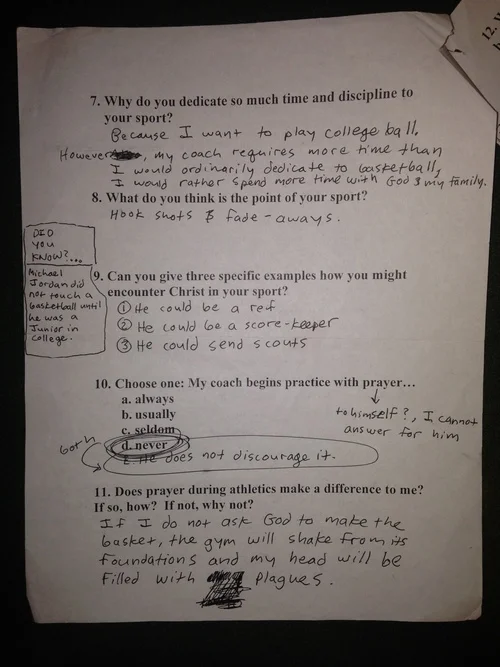 12.
7. Why do you dedicate so much time and discipline to
your sport?
Because I want to play college ball.
However, my coach requires more time than
I would ordinarily dedicate to basketball,
I would rather spend more time with God & my family.
8. What do you think is the point of your sport?
Hook shots & fade-aways.
DID
YOU
KNOW?...
Michael
Jordan did
not touch a
basketball until
he was a
Junior in
college.
9. Can you give three specific examples how you might
encounter Christ in your sport?
① He could be a ref
② He could be a score-keeper
③ He could send scouts
10. Choose one: My coach begins practice with prayer...
a. always
b. usually
c. seldom
d. never
E. He does not discourage it.
both
to himself?, I cannot
answer for him
11. Does prayer during athletics make a difference to me?
If so, how? If not, why not?
If I do not ask God to make the
basket, the gym will shake from its
foundations and my head will be
filled with plagues.